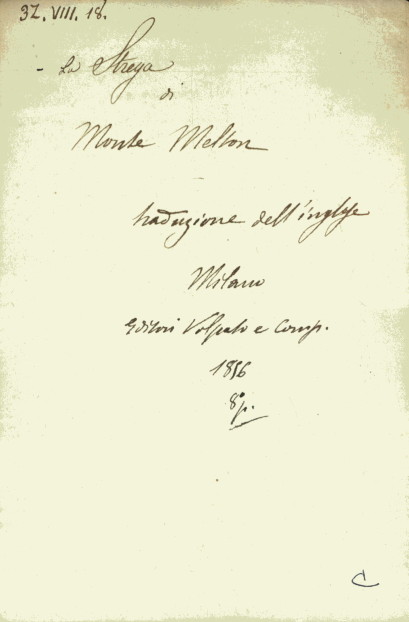 37. VIII. 18.
- La Strega
di
Monte Melton
traduzione dell'inglese
Milano
Editori Volpato e Comp.
1856
8º p.
C